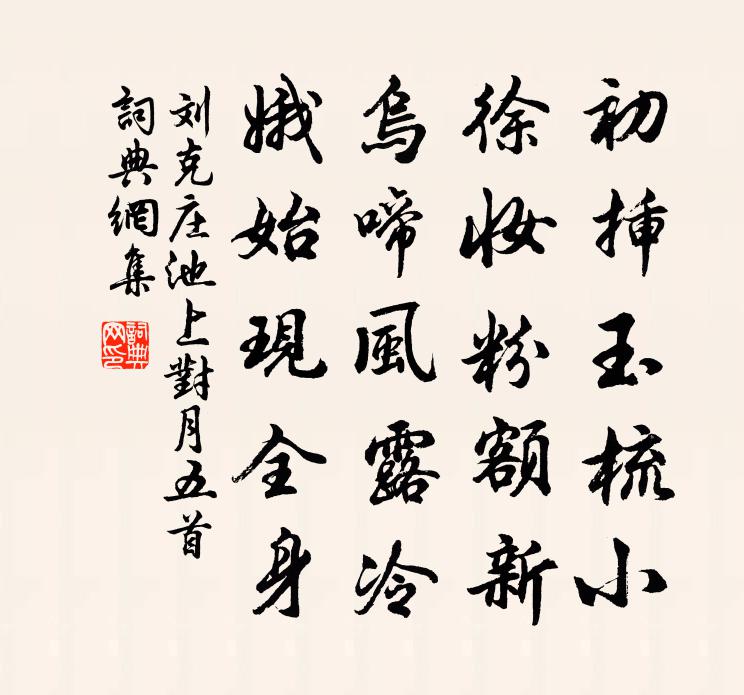 初插玉梳小
徐妝粉額新
烏啼風露冷
娥始現全身
刘克庄池上對月五首
詞典網集
詞典
网印